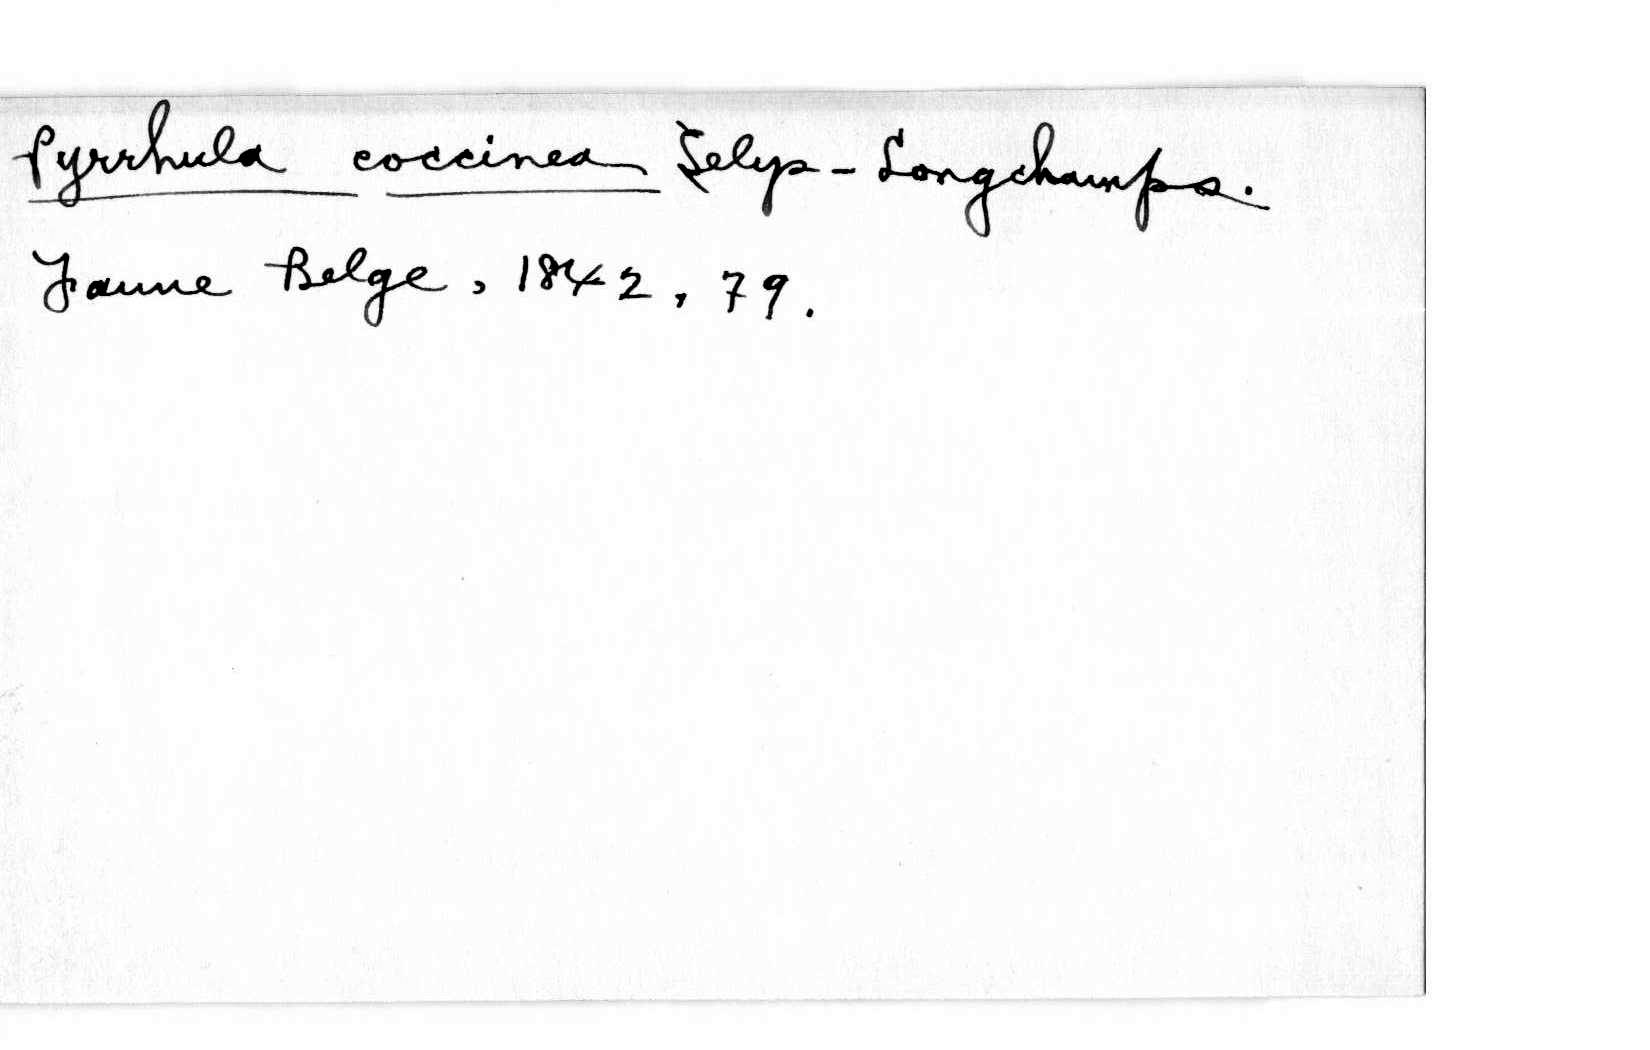 Pyrrhula coccinea Selys-Longchamps.
Faune Belge, 1842, 79.